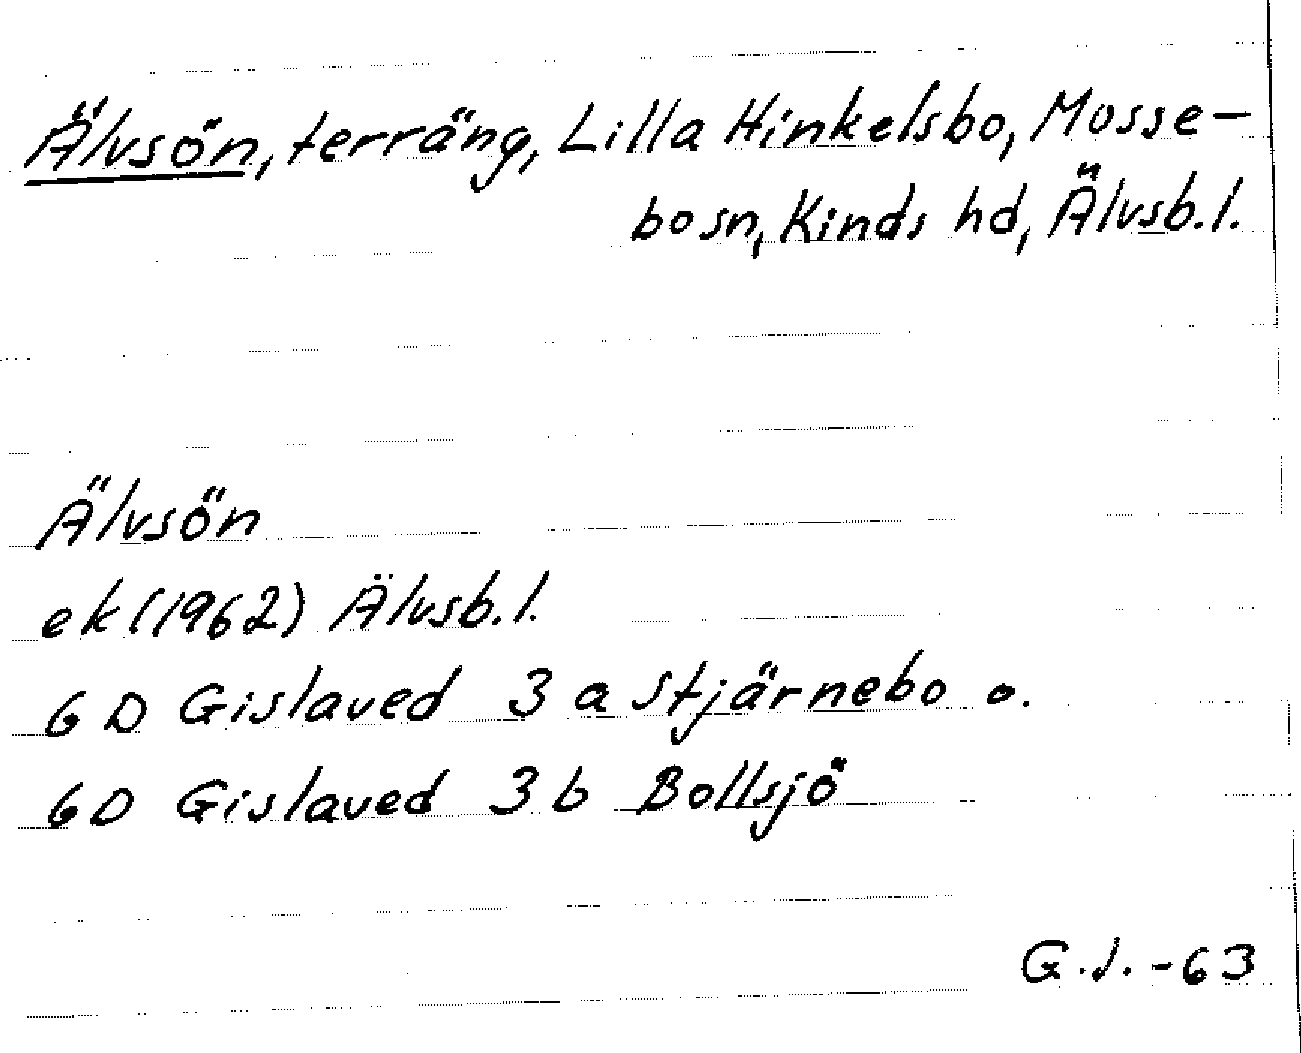 Älvsön, terräng, Lilla Hinkelsbo, Mosse-
bo sn, Kinds hd, Älvsb.l.
Älvsön
ek (1962) Älvsb.l.
6 D Gislaved 3 a Stjärnebo o.
6 D Gislaved 3 b Bollsjö
G.J. -63